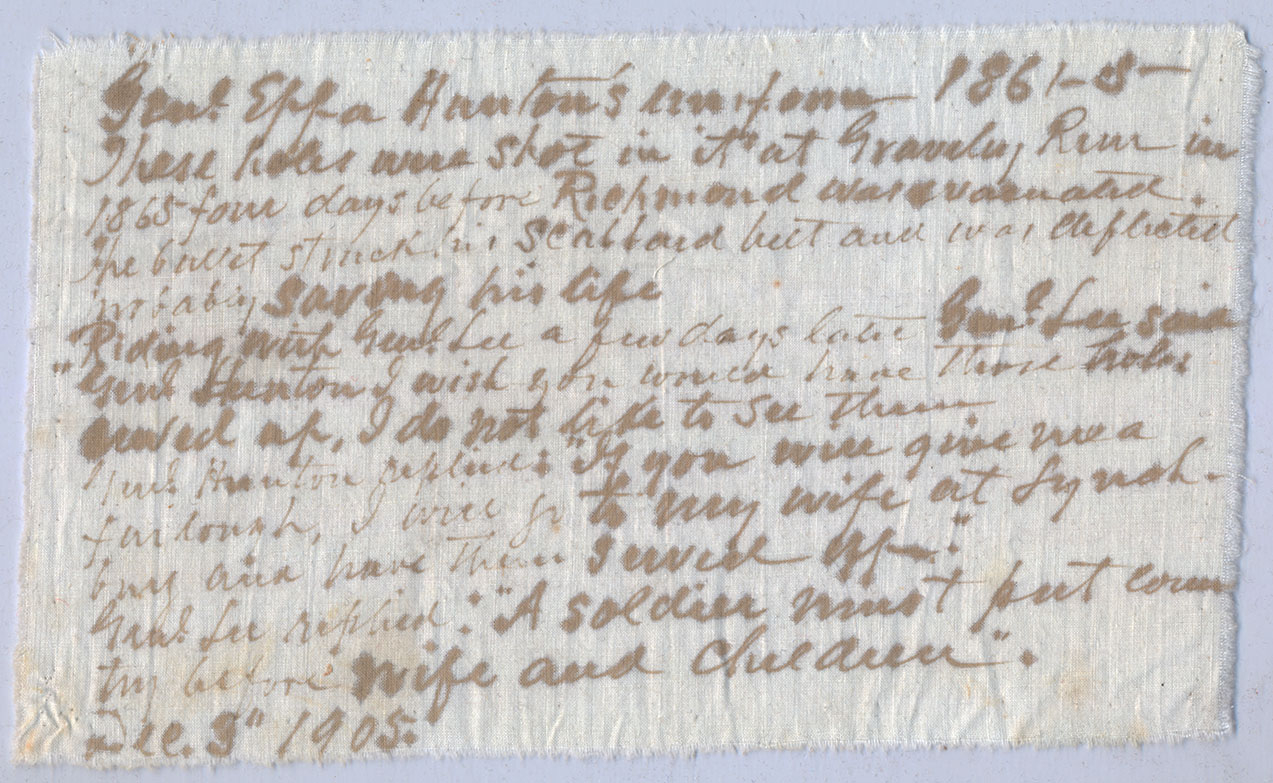 Genl. Eppa Hunton's uniform 1861-5-
These holes were shot in it at Gravely Run in
1865 four days before Richmond was evacuated.
The bullet struck his Scabbard belt and was deflected
probably saving his life
Riding with Genl. Lee a few days later Genl. Lee said
"Genl. Hunton I wish you would have those holes
sewed up, I do not like to see them
Genl. Hunton replied: "If you will give me a
furlough, I will go to my wife at Lynch-
burg and have them sewed up."
Genl. Lee replied: "A soldier must put coun
try before wife and children".
Dec. 3" 1905.